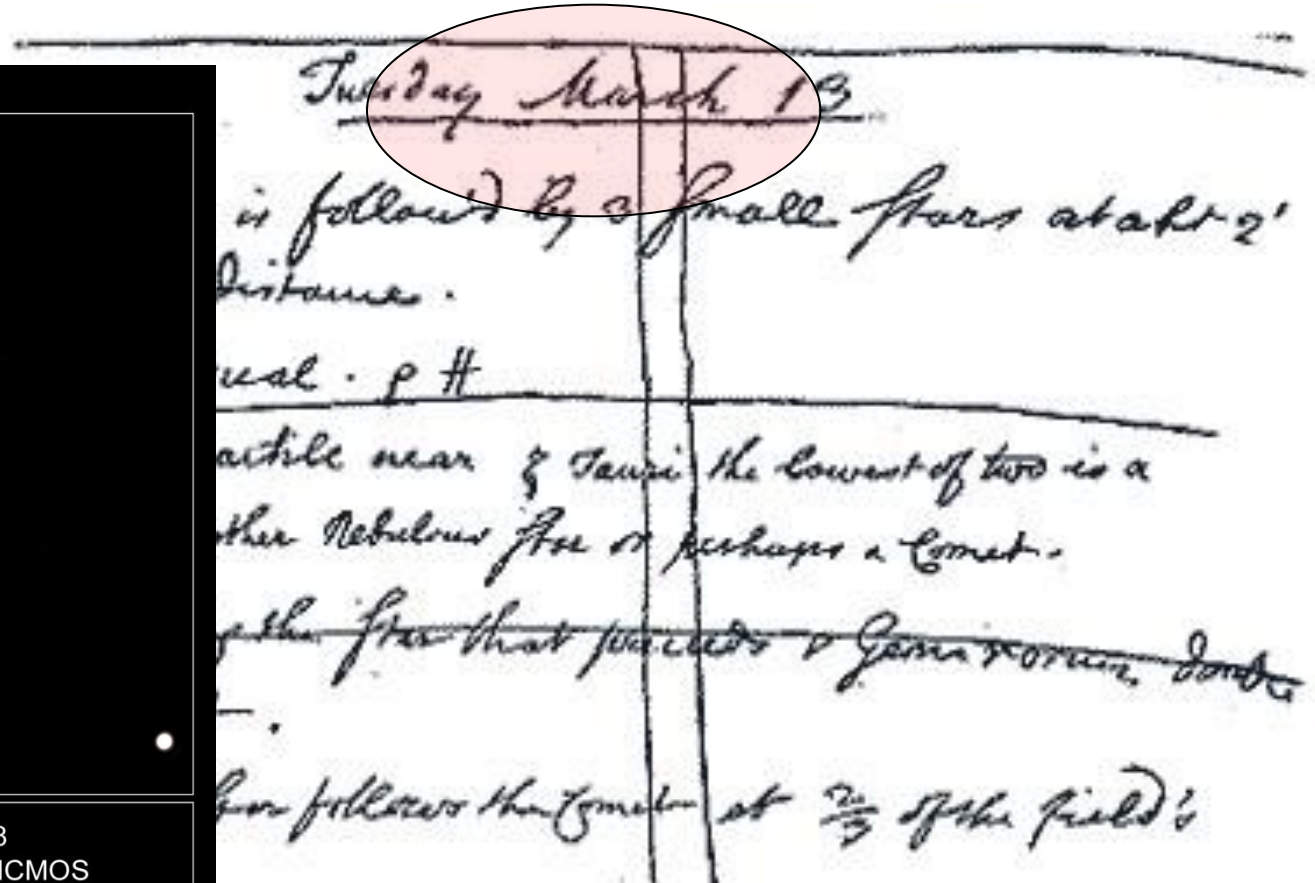 Tuesday March 13
is follow'd by 3 small stars at abt 2'
distance.
ual. p H
artile near ξ Tauri the lowest of two is a
ther Nebulous star or perhaps a Comet.
the star that preceeds Geminorum double
follows the Comet at 2/3 of the field's
3
ICMOS